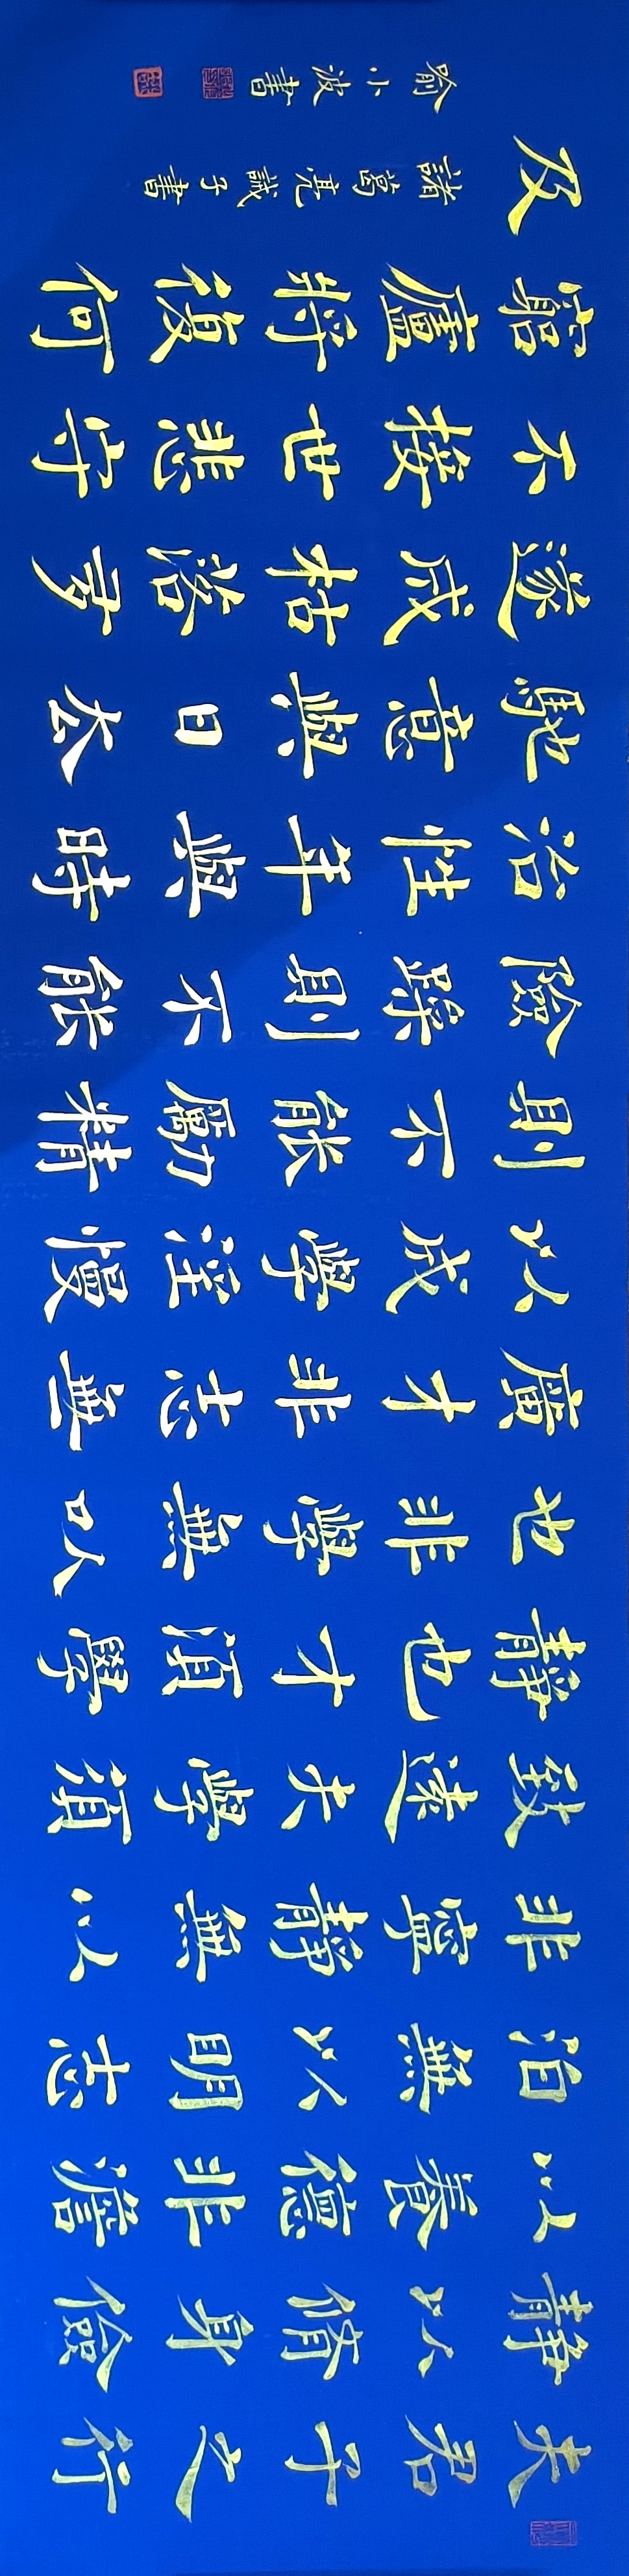 夫君子之行
靜以脩身儉
以養德非澹
泊無以明志
非寧靜無以
致遠夫學須
靜也才須學
也非學無以
廣才非志無
以成學淫慢
則不能勵精
險躁則不能
治性年與時
馳意與日去
遂成枯落多
不接世悲守
窮廬將復何
及
諸葛亮誡子書
喻小波書